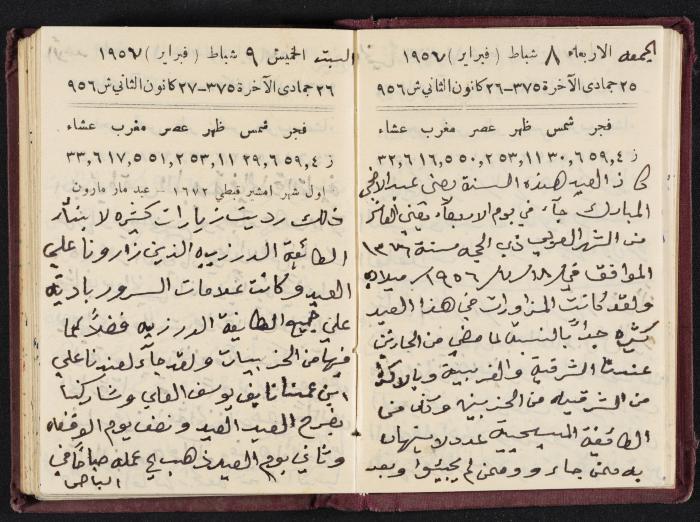 الجمعه الاربعاء ٨ شباط ( فبراير ) ١٩٥٦
٢٥ جمادى الآخرة ٣٧٥ــ٢٦ كانون الثاني ش ٩٥٦
فجر شمس ظهر عصر مغرب عشاء
ز ٥٩,٤ ٣٠,٦ ٥٣,١١ ٥٠,٢ ١٦,٥ ٣٢,٦
كان العيد هذه السنة يعني عيد الاضحى
المبارك جآء في يوم الاربعآء يعني العاشر
من الشهر العربي ذي الحجه سنة ١٣٧٦
الموافق في ١٨/٧/١٩٥٦ ميلاديه
ولقد كانت المزاورات في هذا العيد
كثيره جداً بالنسبة لما مضى من الحارتين
عندنا الشرقية والغربية وبالاكثر
من الشرقيه من الحزبيه وكمان من
الطائفية المسيحية عدد لا يستهان
به ممن جاء و وممن لم يجيئوا وبعد
السبت الخميس ٩ شباط ( فبراير ) ١٩٥٦
٢٦ جمادى الآخرة ٣٧٥ــ٢٧ كانون الثاني ش ٩٥٦
فجر شمس ظهر عصر مغرب عشاء
ز ٥٩,٤ ٢٩,٦ ٥٣,١١ ٥١,٢ ١٧,٥ ٣٣,٦
اول شهر امشير قبطي ١٦٧٢ – عيد مار مارون
ذلك رديت زيارات كثيره لابنآء
الطائفة الدرزيه الذين زارونا على
العيد وكانت علامات السرور باديه
على جميع الطايفة الدرزيه فضلاً عما
فيها من الحزبيات ولقد جآء لعندنا على
ابن عمنا نايف يوسف العلي وشاركنا
بفرح العيد العيد ونصف يوم الوقفه
وثاني يوم العيد ذهب الى عمله صباحاً في
الباص